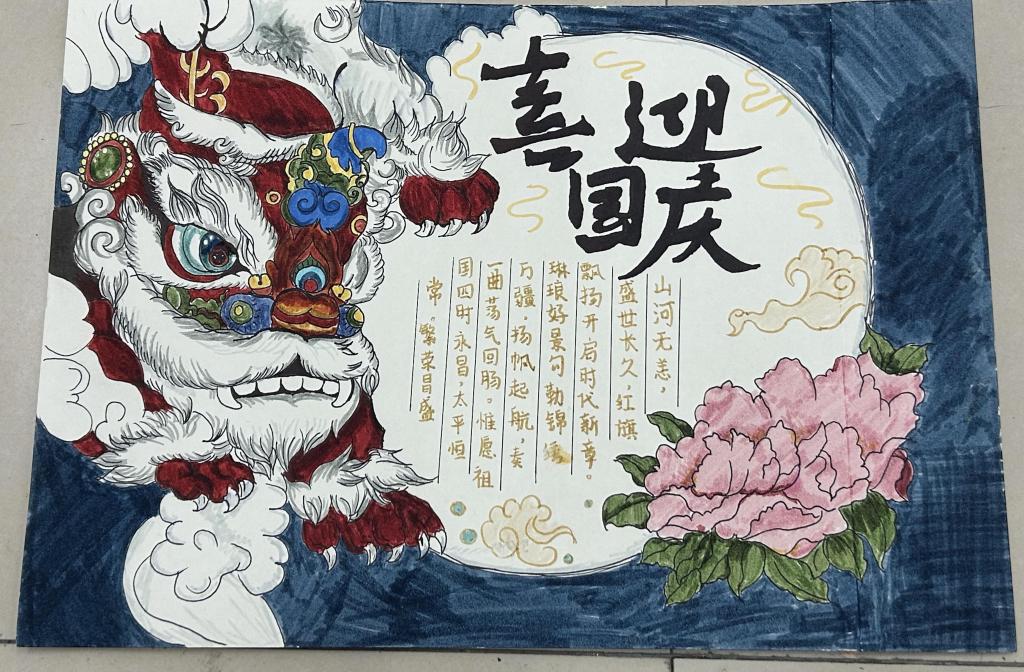 喜迎
国庆
山河无恙，
盛世长久，红旗
飘扬开启时代新章。
琳琅好景句勒锦绣
万疆，扬帆起航，奏
一曲荡气回肠。惟愿祖
国四时永昌，太平恒
常。繁荣昌盛